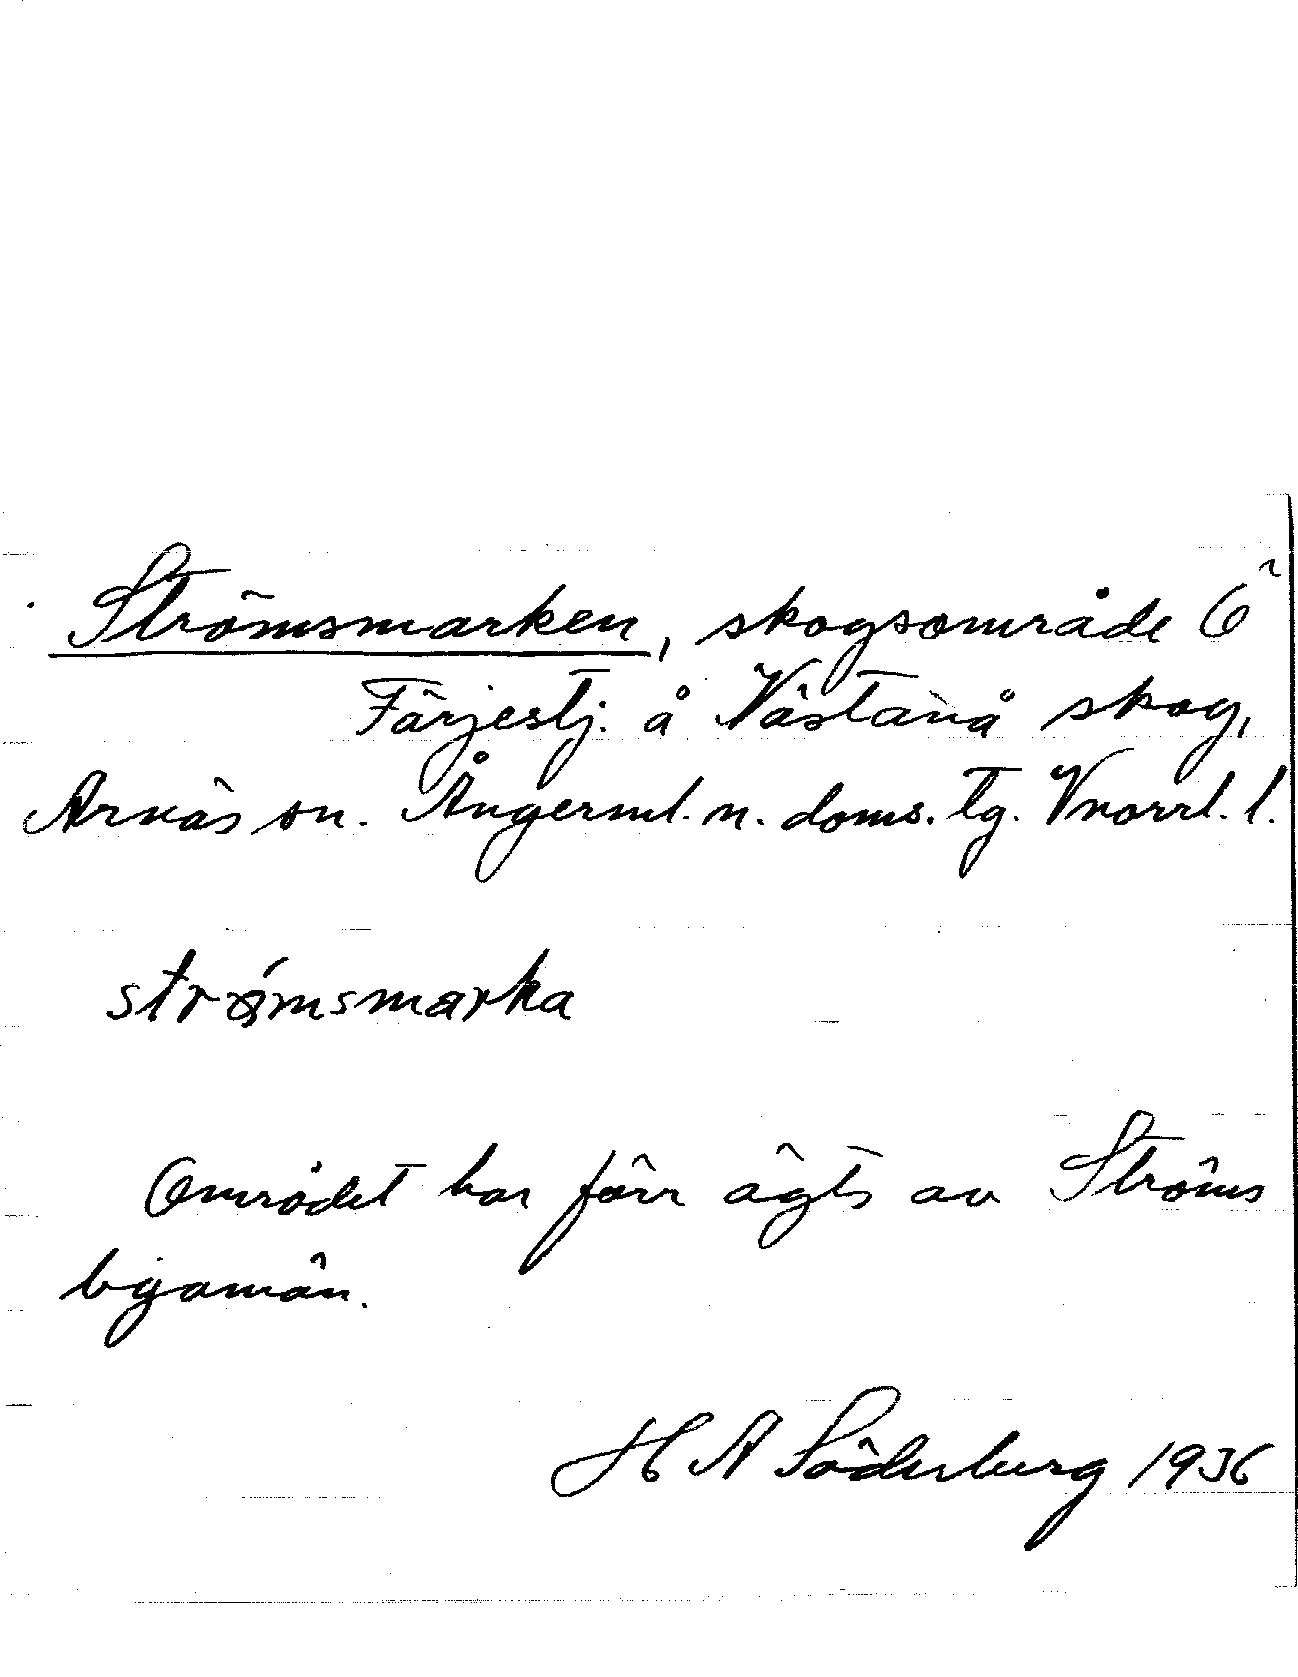 Strömsmarken, skogsområde Ö
Färjestj. å Västanå skog,
Arnäs sn. Ångerml. n. doms. tg. Vnorrl. l.
strømsmarka
Området har förr ägts av Ströms
byamän.
H A Söderberg 1936